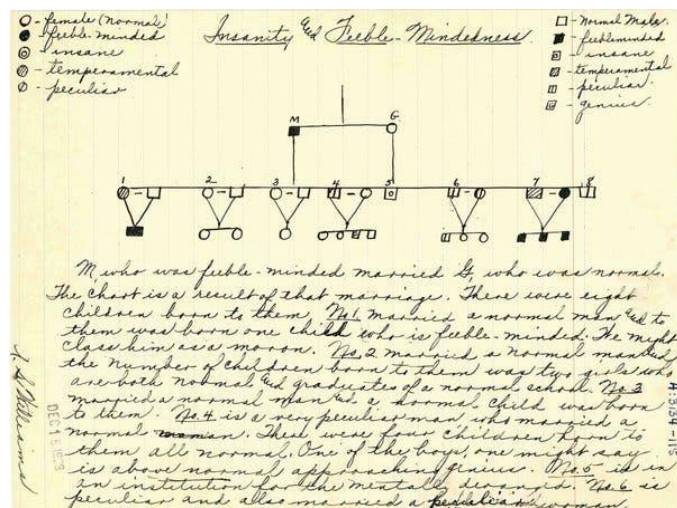 Insanity and Feeble-Mindedness.
- female (normal)
- feeble minded
- insane
- temperamental
- peculiar
- Normal Male.
- feebleminded
- insane
- temperamental
- peculiar.
- genius.
M G
1 2 3 4 5 6 7 8
M who was feeble-minded married G, who was normal.
The chart is a result of that marriage. There were eight
children born to them. No. 1 married a normal man and to
them was born one child who is feeble-minded. We might
class him as a moron. No. 2 married a normal man and
the number of children born to them was two girls who
are both normal and graduates of a normal school. No. 3
married a normal man and a normal child was born
to them. No. 4 is a very peculiar man who married a
normal woman. There were four children born to
them all normal. One of the boys, one might say
is above normal approaching genius. No. 5 is in
an institution for the mentally deranged. No. 6 is
peculiar and also married a peculiar woman.
Williams
DEC 15 1923
A:3134-115